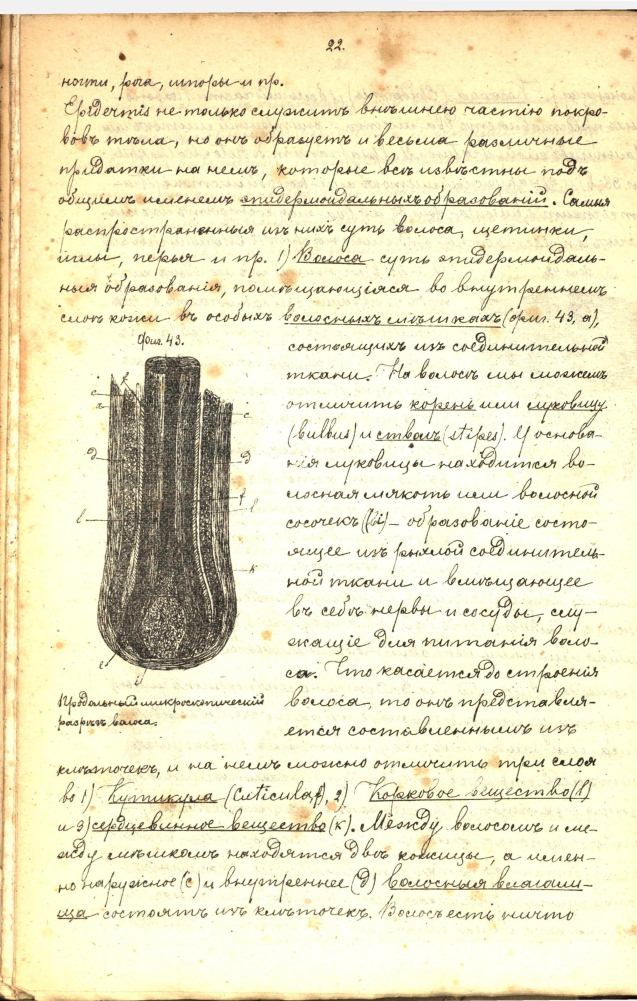 22.
ногти, рога, шпоры и пр.
Epidermis не только служитъ внѣшнею частію покро-
вовъ тѣла, но онъ образуетъ и весьма различные
придатки на немъ, которые всѣ извѣстны подъ
общимъ именемъ эпидермоидальныхъ образованій. Самыя
распространенныя изъ нихъ суть волоса, щетинки,
иглы, перья и пр. 1) Волоса суть эпидермоидаль-
ныя образованія, помѣщающіяся во внутреннемъ
слоѣ кожи въ особыхъ волосныхъ мѣшкахъ (фиг. 43, а),
Фиг. 43.
состоящихъ изъ соединительной
ткани. На волосѣ мы можемъ
отличить корень или луковицу
(bulbus) и стволъ (stipes). У основа-
нія луковицы находится во-
лосная мякоть или волосной
сосочекъ (i) – образованіе состо-
ящее изъ рыхлой соединитель-
ной ткани и вмѣщающее
въ себѣ нервы и сосуды, слу-
жащіе для питанія воло-
са. Что касается до строенія
волоса, то онъ представля-
ется составленнымъ изъ
Продальный микроскопическій
разрѣзъ волоса.
клѣточекъ, и на немъ можно отличить три слоя
во 1) Кутикула (Cuticula, f), 2) Корковое вещество (l)
и 3) сердцевинное вещество (к). Между волосомъ и ме-
жду мѣшкомъ находятся двѣ кожицы, а имен-
но наружное (с) и внутреннее (d) волосныя влагали-
ща состоятъ изъ клѣточекъ. Волосъ есть ничто